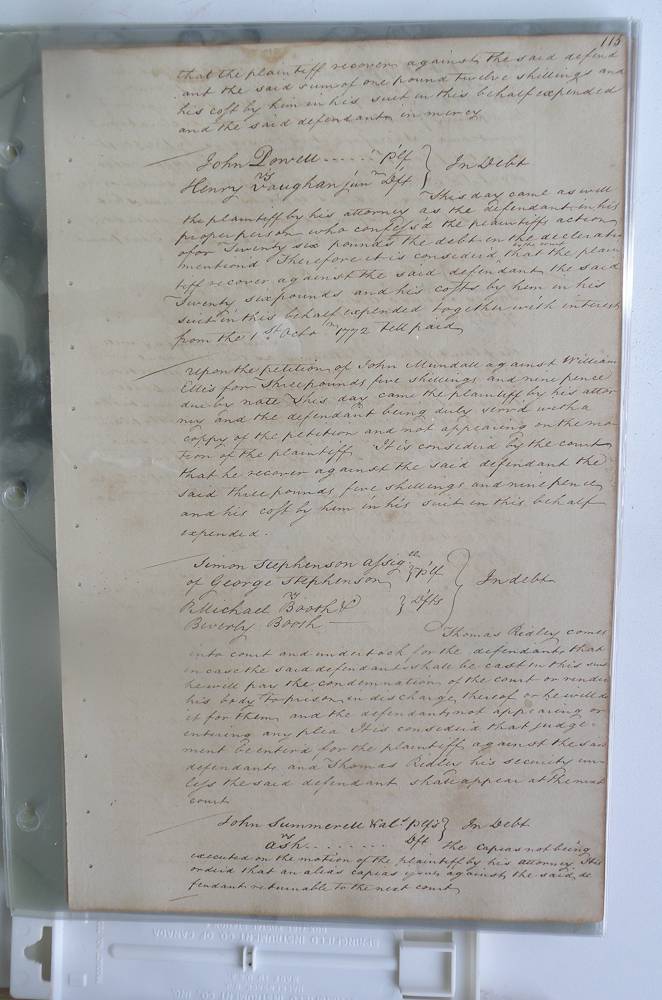 115
that the plaintiff recover against the said defend
ant the said sum of one pound twelve shillings and
his cost by him in his suit in this behalf expended
and the said defendant in mercy
John Powell ...... Plf } In Debt
vs
Henry Vaughan junr Dft
This day came as well
the plaintiff by his attorney as the defendant in his
proper person who confess'd the plaintiffs action
for Twenty six pounds the debt in the declarati
mentiond Therefore it is consider'd by the court that the plain
tiff recover against the said defendant the said
Twenty six pounds and his costs by him in his
suit in this behalf expended together with interest
from the 1st Octo 1772 till paid
Upon the petition of John Mundall against William
Ellis for Three pounds five shillings and nine pence
due by note This day came the plaintiff by his attor
ney and the defendant being duly serv'd with a
coppy of the petition and not appearing on the mo
tion of the plaintiff It is consider'd by the court
that he recover against the said defendant the
said three pounds five shillings and nine pence
and his cost by him in his suit in this behalf
expended.
Simon Stephenson assige
of George Stephenson } Plf } In debt
vs
Michael Booth &
Beverly Booth } Dfts
Thomas Ridley comes
into court and undertook for the defendants that
in case the said defendant shall be cast in this suit
he will pay the condemnation of the court or render
his body to prison in discharge thereof or he will do
it for them and the defendants not appearing or
entering any plea It is consider'd that judge-
ment be enter'd for the plaintiff against the said
defendants and Thomas Ridley his security un-
less the said defendant shall appear at the next
court
John Summerell & als Plfs } In Debt
vs
Ash ........ Dft
the capias not being
executed on the motion of the plaintiff by his attorney It is
order'd that an alias capias against the said de
fendant returnable to the next court
SPRINGFIELD INSTRUMENT CO. INC.
INSTRUMENT CO. OF CANADA